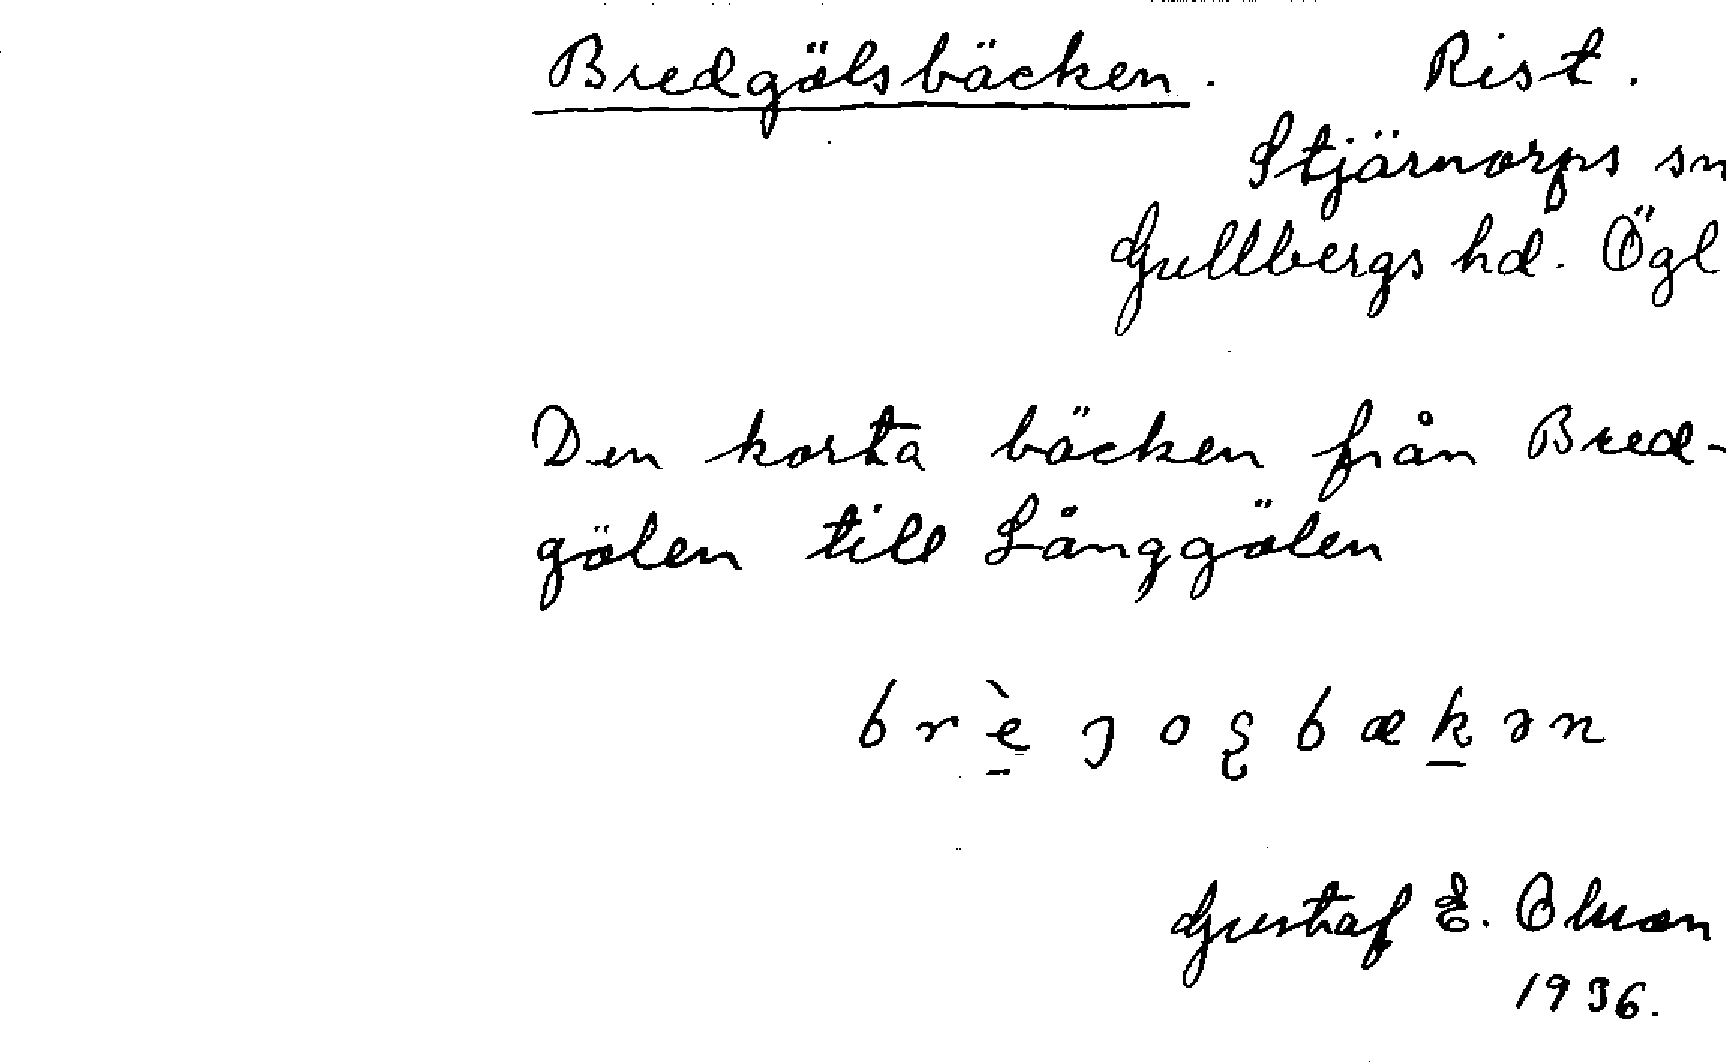 Bredgölsbäcken. Rist.
Stjärnorps sn
Gullbergs hd. Ögl
Den korta bäcken från Bred-
gölen till Långgölen
Gustaf E. Olsson
1936.